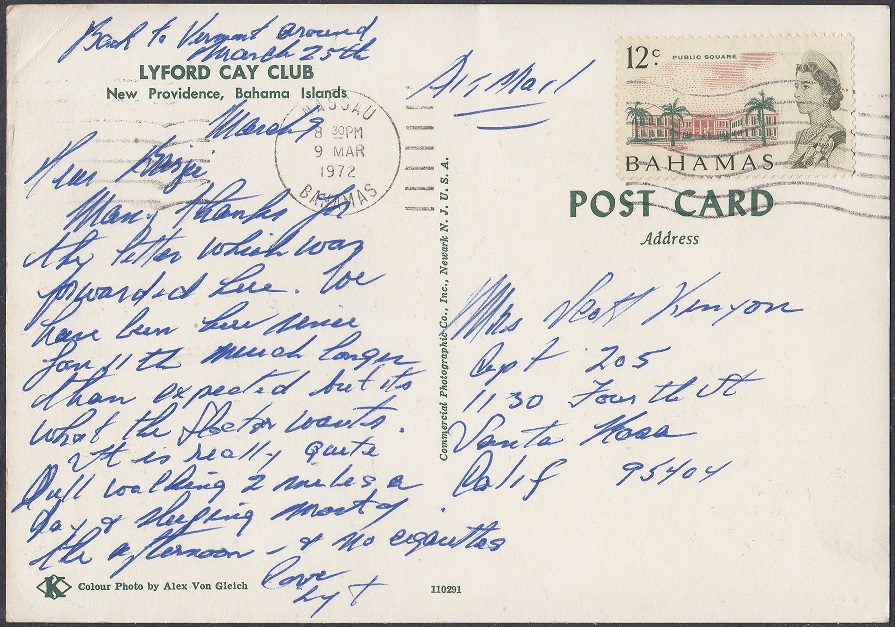 Back to Vermont around
March 25th
LYFORD CAY CLUB
New Providence, Bahama Islands
March 9
Dear
Many thanks for
the letter which was
forwarded here. We
have been here since
Jan 11 th much longer
than expected but its
what the Doctor wants.
It is really quite
Dull walking 2 miles a
day & sleeping most of
the afternoon - & no cigarettes
Love
Colour Photo by Alex Von Gleich
K
110291
NASSAU
8 30PM
9 MAR
1972
BAHAMAS
Commercial Photographic Co., Inc., Newark N. J. U. S. A.
Air Mail
12c
PUBLIC SQUARE
BAHAMAS
POST CARD
Address
Mrs Scott Kenyon
Apt 205
1130 Fourth St
Santa Rosa
Calif 95404